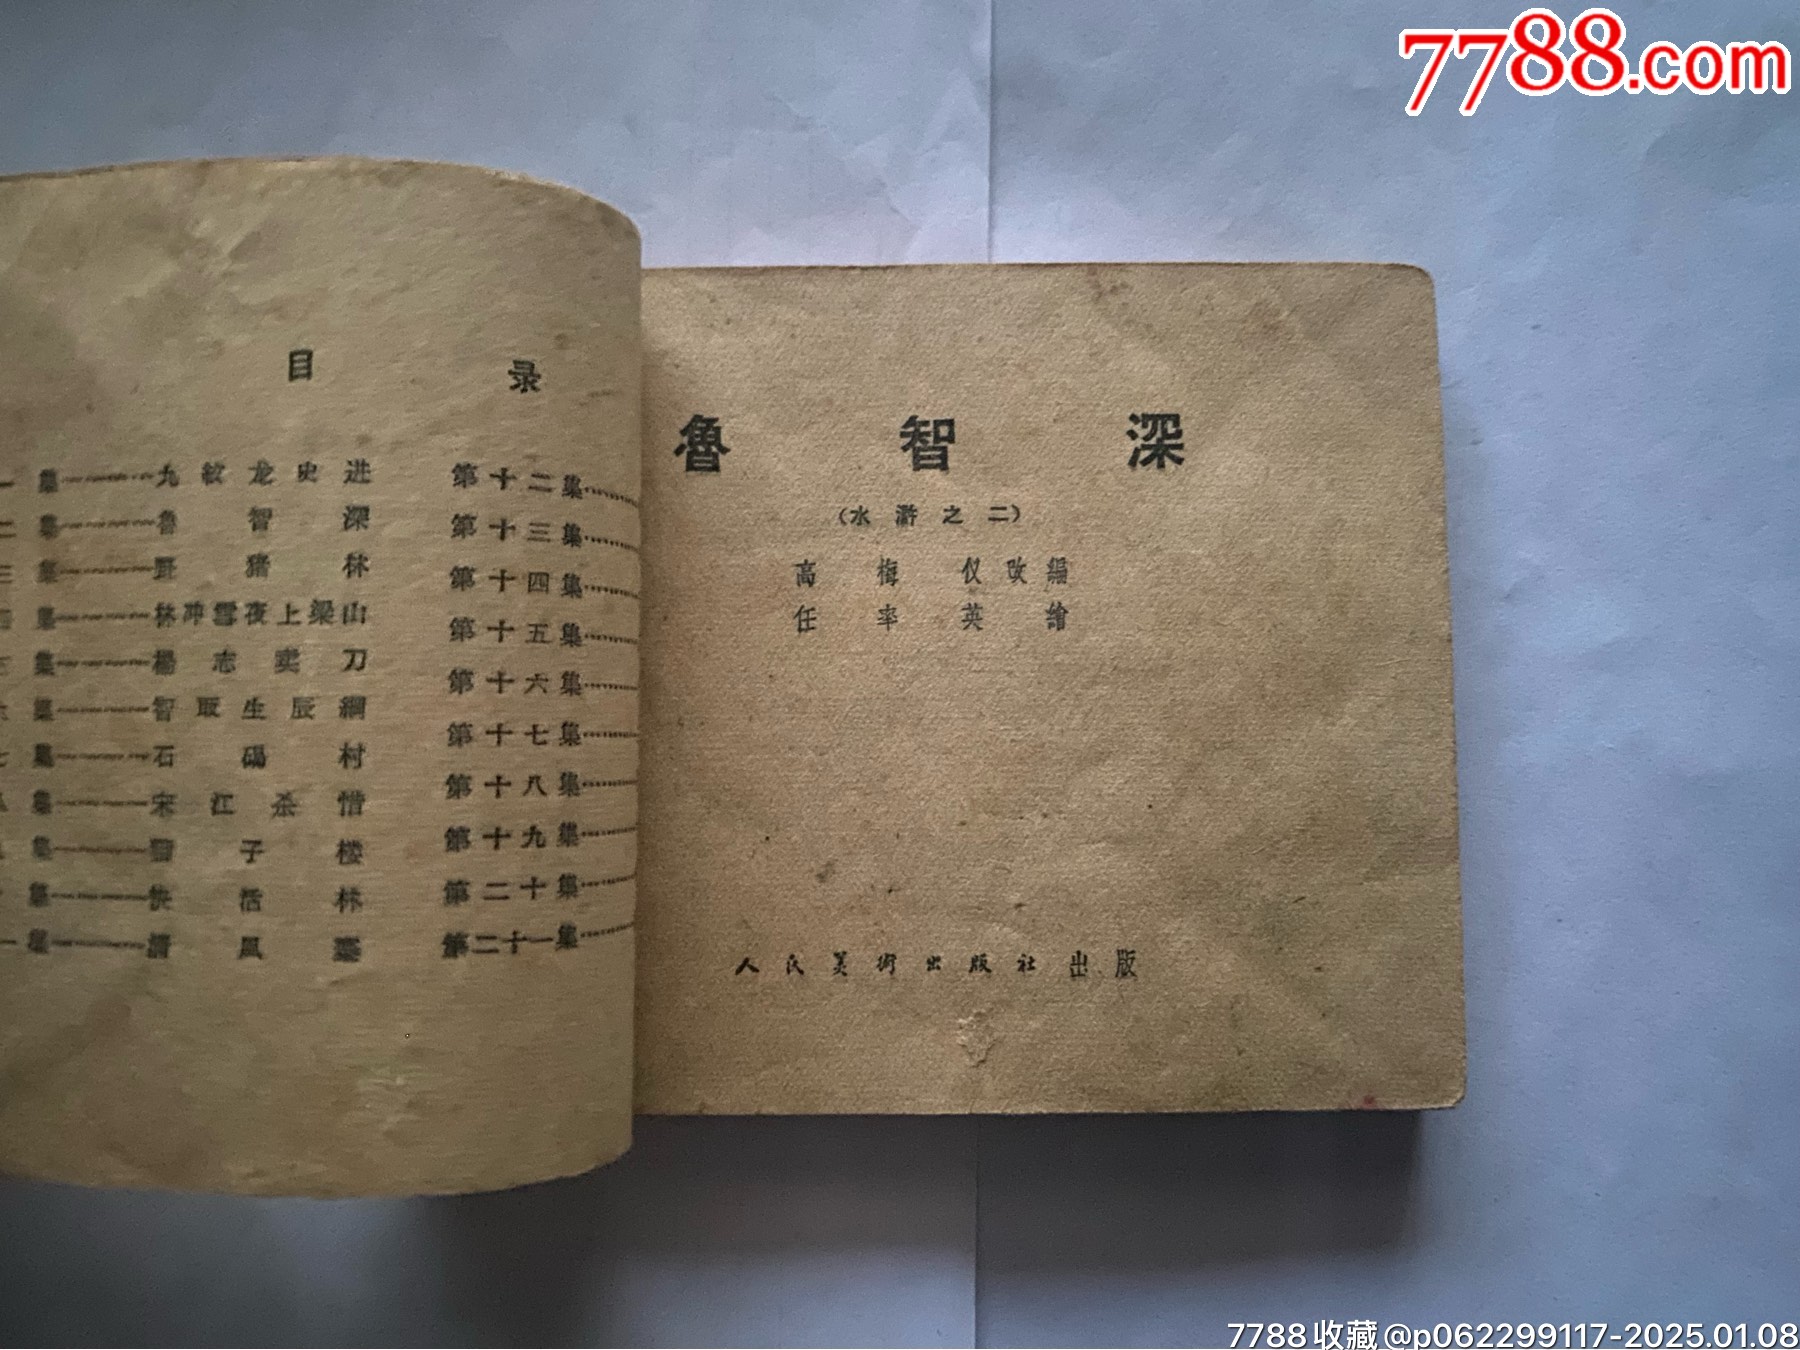 7788.com
目 录
一集………九纹龙史进
二集………鲁智深
三集………野猪林
四集………林冲雪夜上梁山
五集………楊志卖刀
集………智取生辰綱
七集………石碣村
集………宋江杀惜
集………子楼
集………快活林
一集………清風寨
第十二集……
第十三集……
第十四集……
第十五集……
第十六集……
第十七集……
第十八集……
第十九集……
第二十集……
第二十一集……
魯智深
(水滸之二)
高梅仪改編
任率英繪
人民美術出版社出版
7788收藏@p062299117-2025.01.08